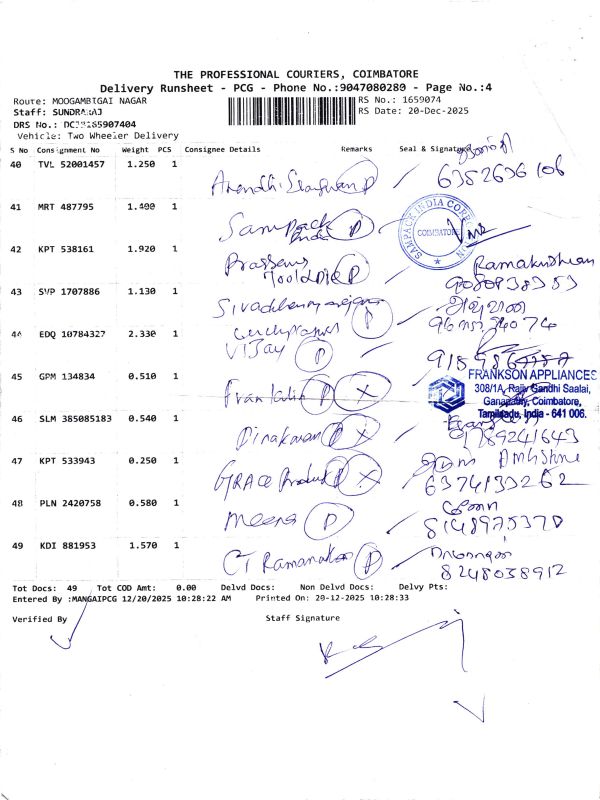 THE PROFESSIONAL COURIERS, COIMBATORE
Delivery Runsheet - PCG - Phone No.:9047080280 - Page No.:4
Route: MOOGAMBIGAI NAGAR
RS No.: 1659074
Staff: SUNDRARAJ
RS Date: 20-Dec-2025
DRS No.:
Vehicle: Two Wheeler Delivery
S No Consignment No Weight PCS Consignee Details Remarks Seal & Signature
40 TVL 52001457 1.250 1 P
6382636106
41 MRT 487795 1.400 1 Sampack India P
SAMPACK INDIA CORPORATION
COIMBATORE
42 KPT 538161 1.920 1 P
Ramakrishnan
43 SVP 1707886 1.130 1 P
44 EDQ 10784327 2.330 1 VIJAY P
45 GPM 134834 0.510 1 Franklin P X
FRANKSON APPLIANCES
308/1A, Rajiv Gandhi Saalai,
Ganapathy, Coimbatore,
Tamilnadu, India - 641 006.
46 SLM 385085183 0.540 1 Dinakaran P X
9789241643
47 KPT 533943 0.250 1 GRACE Product P X
6374133262
48 PLN 2420758 0.580 1 Meena P
8148975370
49 KDI 881953 1.570 1 CT Ramanathan P
8248038912
Tot Docs: 49 Tot COD Amt: 0.00 Delvd Docs: Non Delvd Docs: Delvy Pts:
Entered By :MANGAIPCG 12/20/2025 10:28:22 AM Printed On: 20-12-2025 10:28:33
Verified By Staff Signature